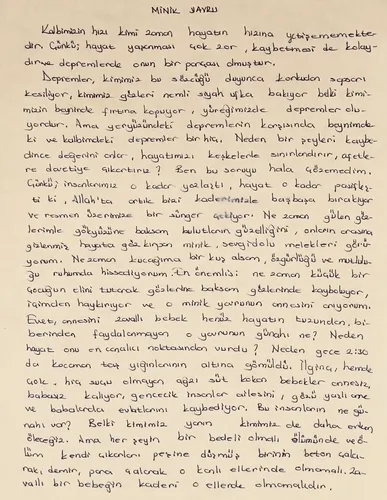 MİNİK YAVRU
Kalbimizin hızı kimi zaman hayatın hızına yetişememekte-
dir. Çünkü; hayat yaşanması çok zor, kaybetmesi de kolay-
dır ve depremlerde onun bir parçası olmuştur.
Depremler, kimimiz bu sözcüğü duyunca korkudan sapsarı
kesiliyor, kimimiz gözleri nemli siyah ufka bakıyor belki kimi-
mizin beyninde fırtına kopuyor, yüreğimizde depremler olu-
yordur. Ama yeryüzündeki depremlerin karşısında beynimde-
ki ve kalbimdeki depremler bir hiç. Neden bir şeyleri kaybe-
dince değerini anlar, hayatımızı keşkelerle sınırlandırır, afetle-
re davetiye çıkartırız? Ben bu soruyu hala çözemedim.
Çünkü; insanlarımız o kadar yozlaştı, hayat o kadar
ti ki, Allah'ta artık bizi kaderimizle başbaşa bırakıyor
ve resmen üzerimize bir sünger çekiyor. Ne zaman gülen göz-
lerimle gökyüzüne baksam bulutların güzelliğini, onların arasına
gizlenmiş hayata göz kırpan minik, sevgi dolu melekleri görü-
yorum. Ne zaman kucağıma bir kuş alsam, özgürlüğü ve mutlulu-
ğu ruhumda hissediyorum. En önemlisi; ne zaman küçük bir
çocuğun elini tutarak gözlerine baksam gözlerinde kayboluyor,
içimden haykırıyor ve o minik yavrunun annesini arıyorum.
Evet, annesini zavallı bebek henüz hayatın tuzundan, bi-
berinden faydalanmayan o yavrunun günahı ne? Neden
hayat onu en can alıcı noktasından vurdu? Neden gece 2:30
da kocaman taş yığınlarının altına gömüldü. İlginç, hemde
çok. hiç suçu olmayan ağzı süt kokan bebekler annesiz,
babasız kalıyor, gencecik insanlar ailesini, gözü yaşlı anne
ve babalarda evlatlarını kaybediyor. Bu insanların ne gü-
nahı var? Belki kimimiz yarın kimimiz de daha erken
öleceğiz. Ama her şeyin bir bedeli olmalı ölümünde ve ö-
lüm kendi çıkarları peşine düşmüş birinin beton çala-
rak, demir, para çalarak o kanlı ellerinde olmamalı. Za-
vallı bir bebeğin kaderi o ellerde olmamalıdır.